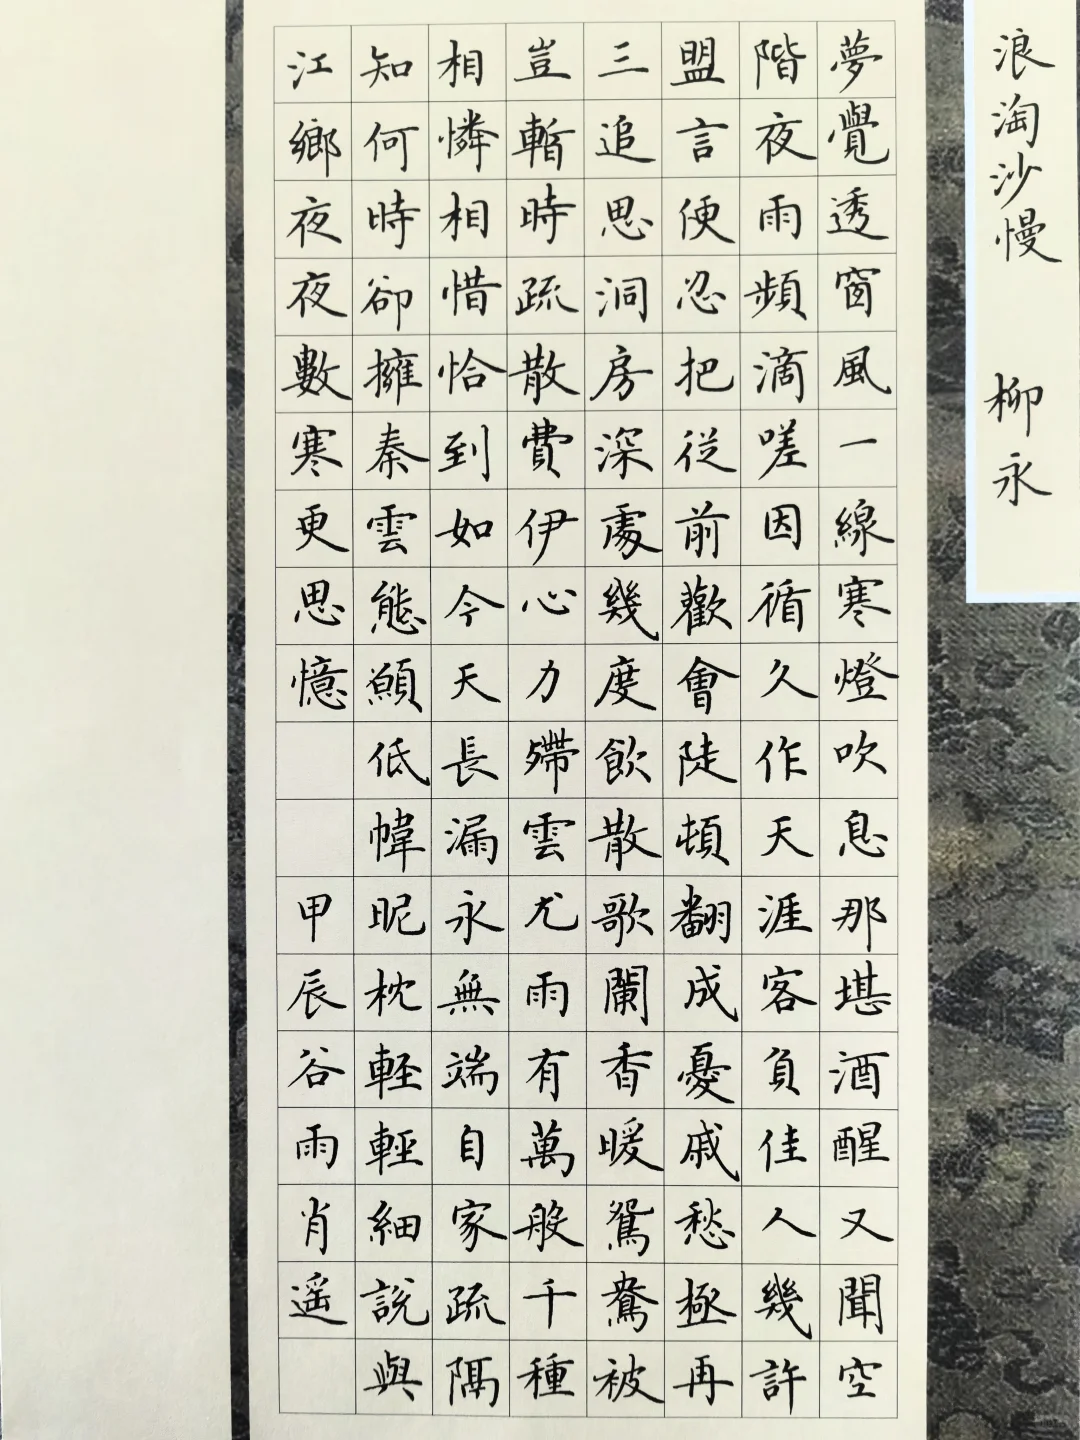 浪淘沙慢 柳永
夢覺透窗風一線寒燈吹息那堪酒醒又聞空
階夜雨頻滴嗟因循久作天涯客負佳人幾許
盟言便忍把從前歡會陡頓翻成憂戚愁極再
三追思洞房深處幾度飲散歌闌香暖鴛鴦被
豈暫時疏散費伊心力殢雲尤雨有萬般千種
相憐相惜恰到如今天長漏永無端自家疏隔
知何時卻擁秦雲態願低幃昵枕輕輕細說與
江鄉夜夜數寒更思憶 甲辰谷雨肖遥